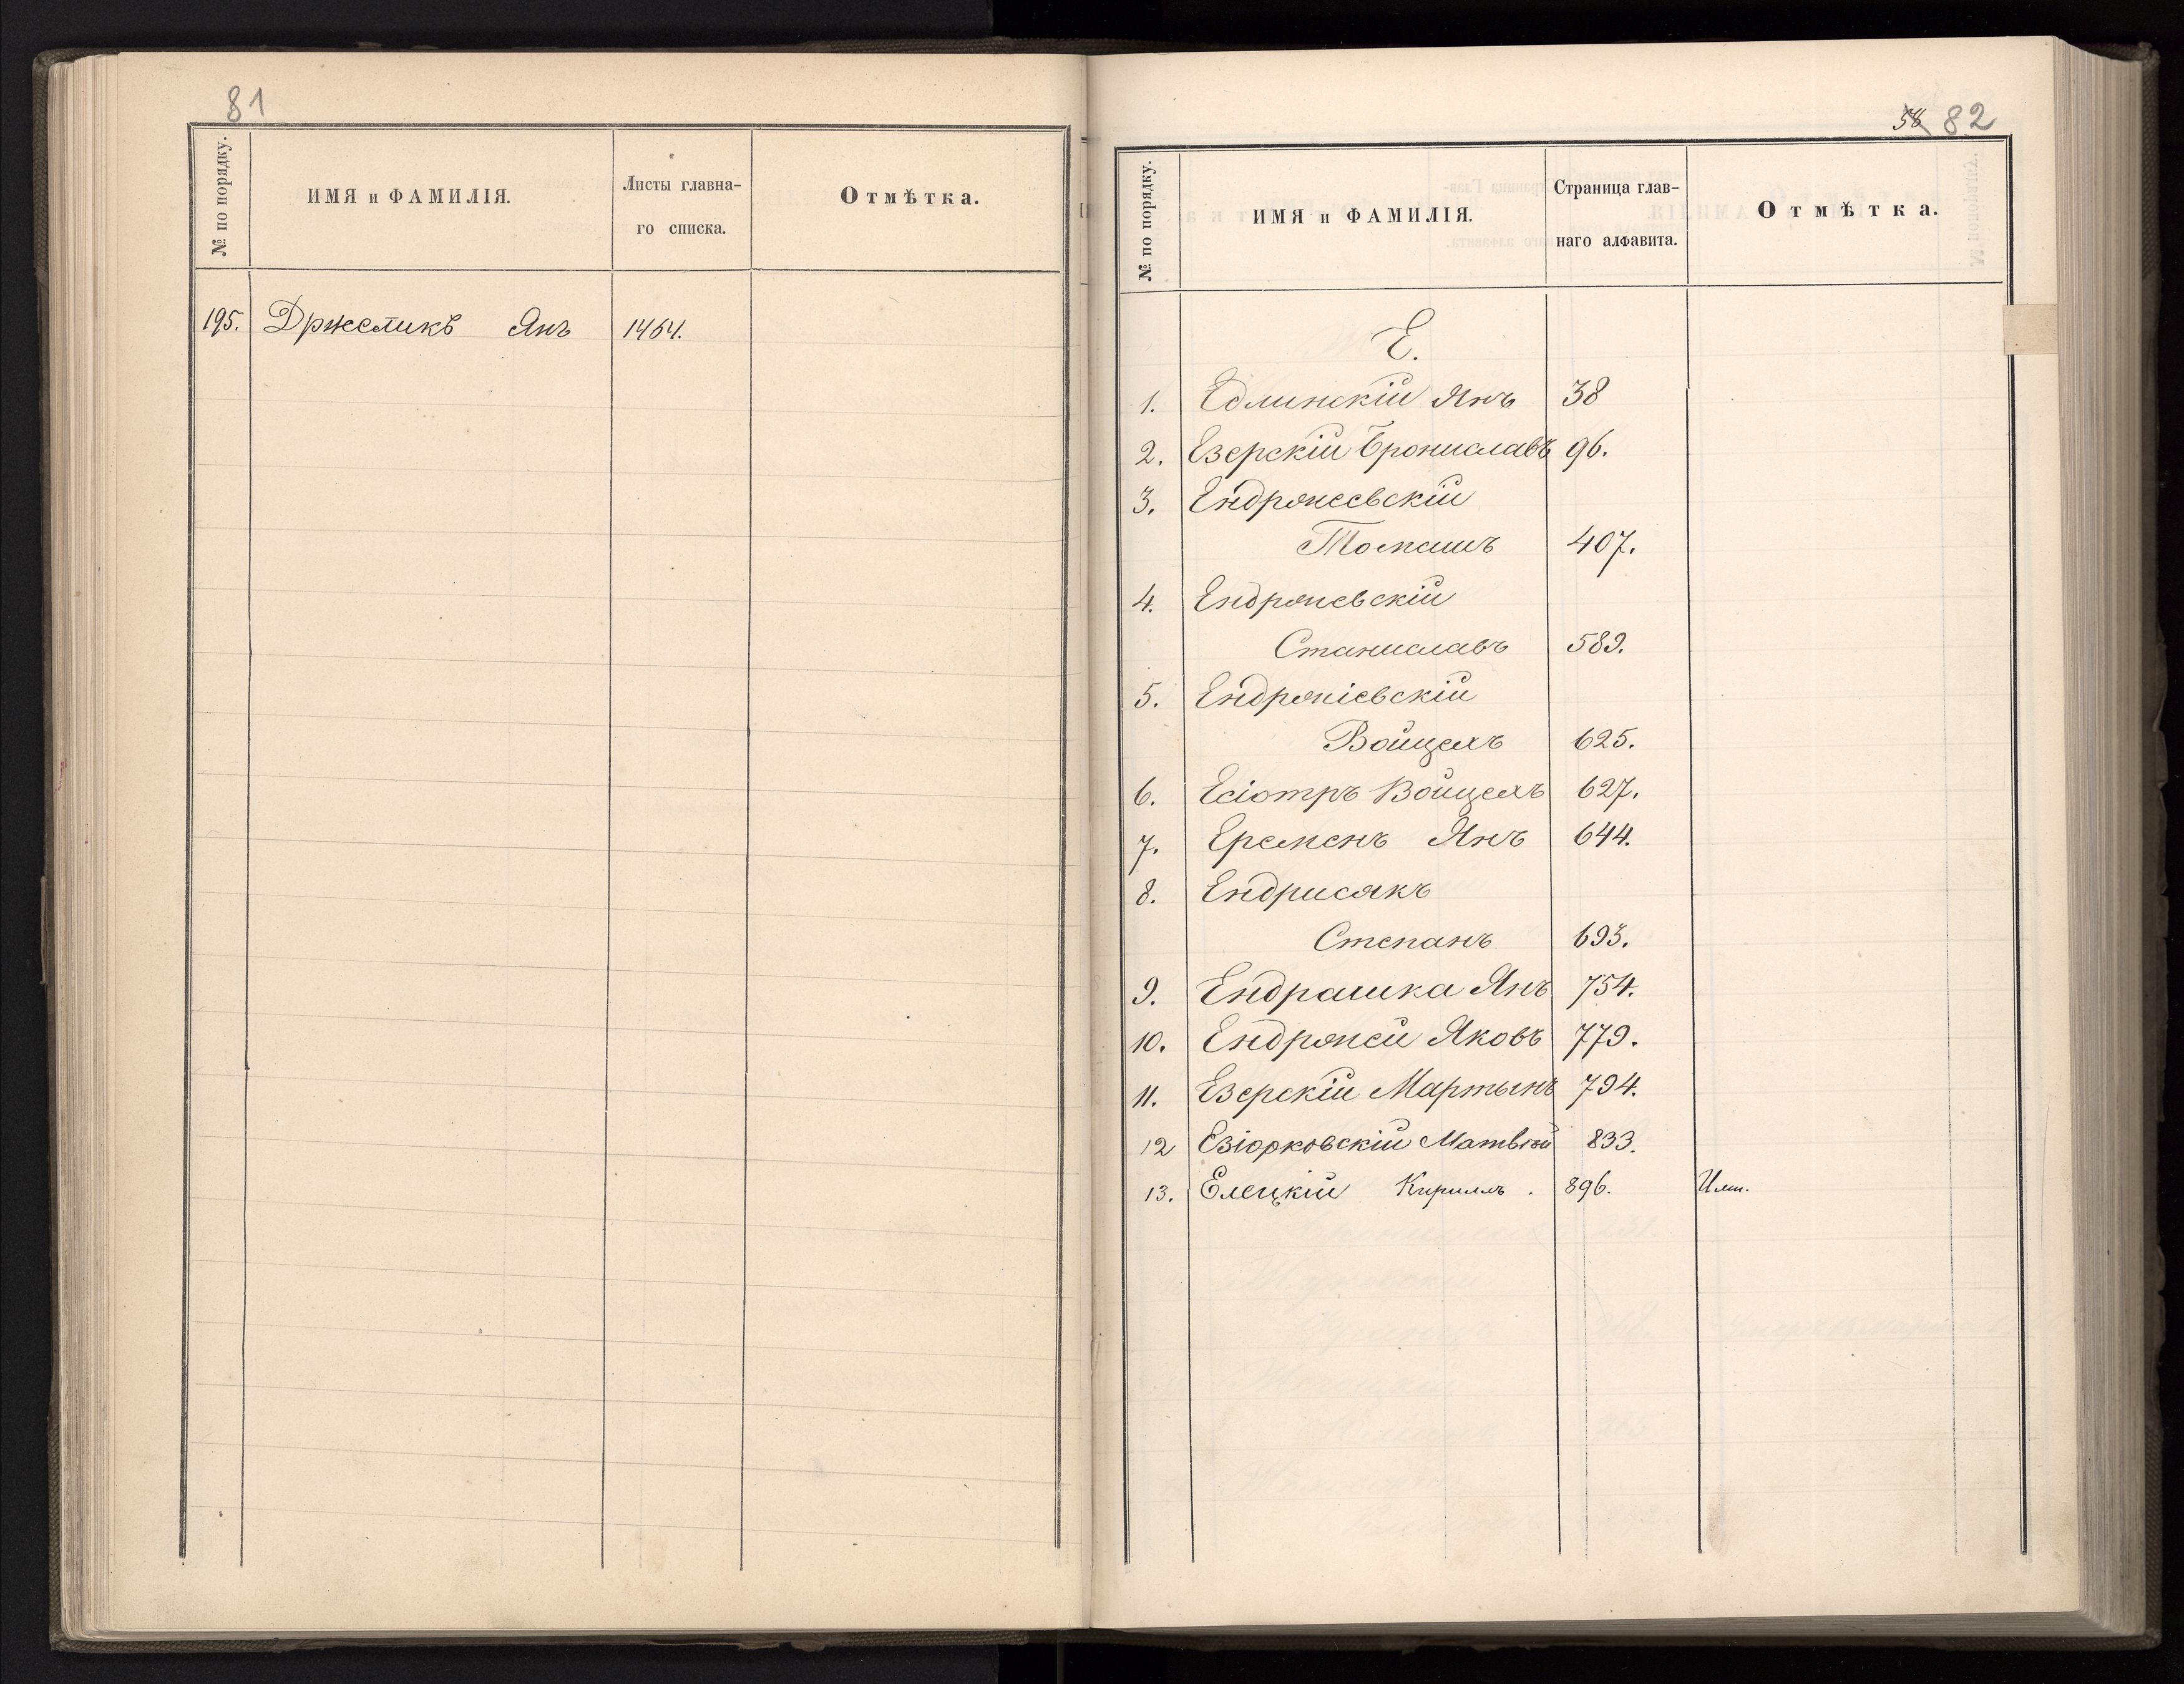 81
№ по порядку.
ИМЯ и ФАМИЛІЯ.
Листы главна-
го списка.
Отмѣтка.
195. Држеликъ Янъ 1464.
58 82
№ по порядку.
ИМЯ и ФАМИЛІЯ.
Страница глав-
наго алфавита.
Отмѣтка.
Е.
1. Едлинскій Янъ 38
2. Езерскій Брониславъ 96.
3. Ендржеевскій
Томашъ 407.
4. Ендржевскій
Станиславъ 589.
5. Ендржіевскій
Войцехъ 625.
6. Есіотръ Войцехъ 627.
7. Еременъ Янъ 644.
8. Ендрисякъ
Степанъ 693.
9. Ендрашка Янъ 754.
10. Ендржей Яковъ 779.
11. Езерскій Мартынъ 794.
12 Езіорковскій Матвѣй 833.
13. Елецкій Кириллъ . 896.